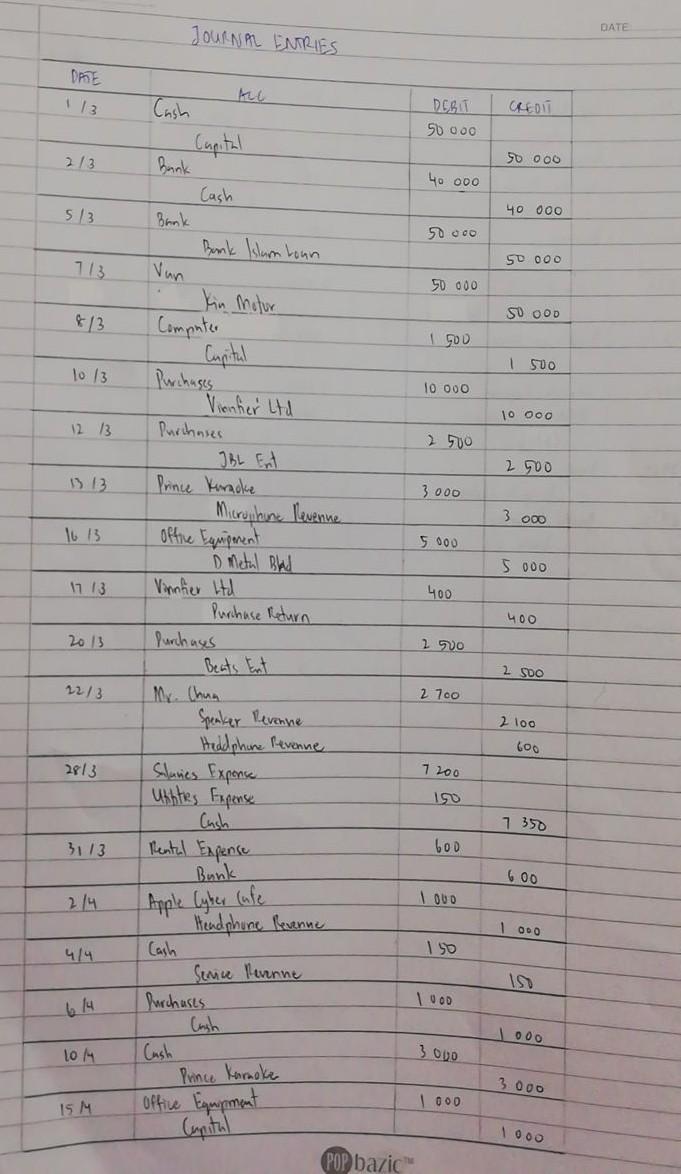 DATE
JOURNAL ENTRIES
DATE ACC DEBIT CREDIT
1/3 Cash 50 000
Capital 50 000
2/3 Bank 40 000
Cash 40 000
5/3 Bank 50 000
Bank Islam Loan 50 000
7/3 Van 50 000
Kin Motor 50 000
8/3 Computer 1 500
Capital 1 500
10/3 Purchases 10 000
Ltd 10 000
12/3 Purchases 2 500
JBL Ent 2 500
13/3 Prince Karaoke 3 000
Microphone Revenue 3 000
16/3 Office Equipment 5 000
D Metal Bhd 5 000
17/3 Ltd 400
Purchase Return 400
20/3 Purchases 2 500
Beats Ent 2 500
22/3 Mr. Chua 2 700
Speaker Revenue 2 100
Headphone Revenue 600
28/3 Salaries Expense 7 200
Utilities Expense 150
Cash 7 350
31/3 Rental Expense 600
Bank 600
2/4 Apple Cyber Cafe 1 000
Headphone Revenue 1 000
4/4 Cash 150
Service Revenue 150
6/4 Purchases 1 000
Cash 1 000
10/4 Cash 3 000
Prince Karaoke 3 000
15/4 Office Equipment 1 000
Capital 1 000
POP bazic™